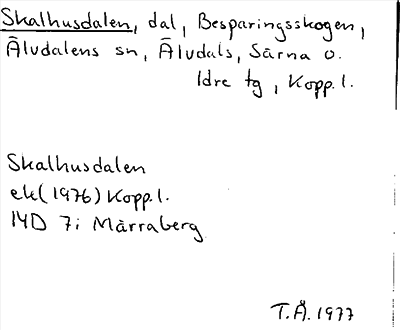 Skalhusdalen, dal, Besparingsskogen,
Älvdalens sn, Älvdals, Särna o.
Idre tg, Kopp.l.
Skalhusdalen
ek(1976) Kopp.l.
14D 7i Märraberg
T.Å. 1977